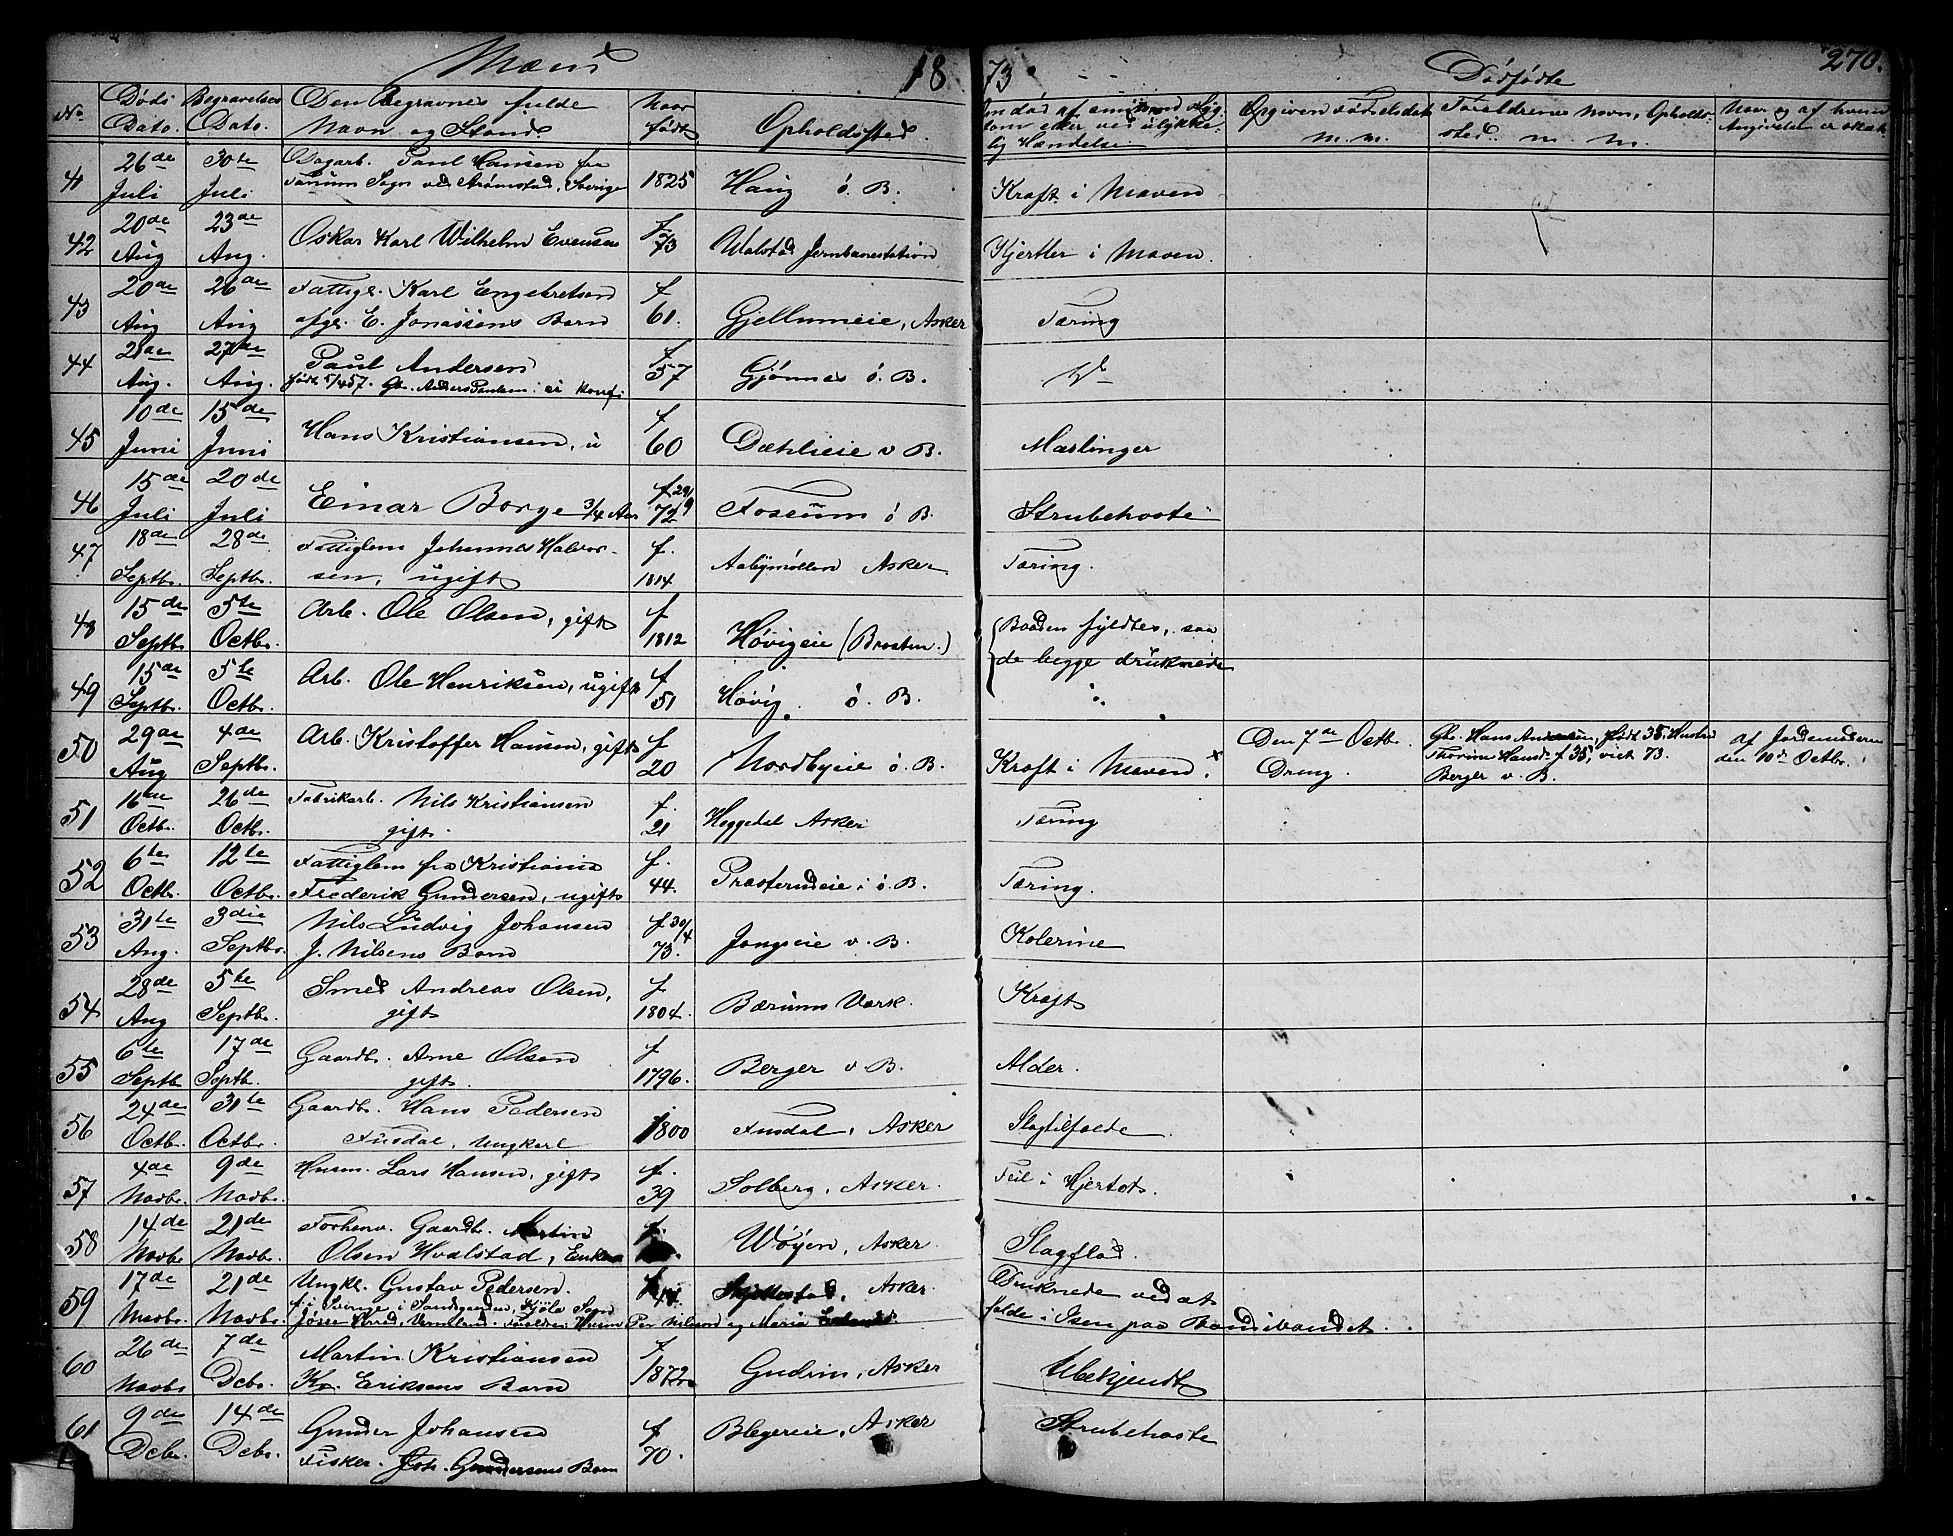 Mænd 1873 Dødfødte 270.
No. Døds Dato. Begravelses Dato. Den Begravnes fulde Navn og Stand Naar født Opholdssted. Om død af smitsom Syg- dom eller ved ulykke- lig Hændelse. Opgiven Fødselsdat. m. m. Forældrenes Navn, Opholds- sted. m. m. Naar og af hvem Angivelse er skeet
41 26de Juli 30te Juli Dagarb. Paul Hansen fra
Tanum Sogn ved Strømstad, Sverige 1825 Haug ø. B. Kræft i Maven
42 20de Aug 23de Aug. Oskar Karl Wilhelm Evensen f 73 Hvalstad Jernbanestation Kjertler i Maven.
43 20de Aug 26de Aug Fattigl. Karl Engebretsen
afgl. E. Jonassens Barn f 61. Gjellumeie, Asker Tæring
44 21de Aug. 27de Aug. Paul Andersen
født 5/4 57. Gb. Anders Paulsen: ei konf: f 57 Gjønnes ø. B. Do
45 10de Juni 15de Juni Hans Kristiansen, u f 60 Dæhlieie v B. Mæslinger
46 15de Juli 20de Juli Einar Borge 3/4 Aar f 29/9 72 Fossum ø B. Strubehoste
47 18de Septbr. 28de Septbr. Fattiglem Johannes Halvor-
sen, ugift f. 1814 Aabymøllen Asker Tæring.
48 15de Septbr 5te Octbr. Arb. Ole Olsen, gift f 1812 Høvigeie (Braaten.) Baaden fyldtes, saa
de begge druknede
49 15de Septbr. 5te Octbr. Arb. Ole Henriksen, ugift f 51 Høvig ø. B. "
50 29de Aug 4de Septbr. Arb. Kristoffer Hansen, gift f 20 Nordbyeie ø. B. Kræft i Maven. Den 7de Octbr. Dreng. Gb. Hans Andersen, født 38, Hustru
Thorine Hansd. f. 35, viet 73.
Berger v. B. af Jordemoderen
den 10de Octbr.
51 16de Octbr. 26de Octbr. Fabrikarb. Nils Kristiansen
gift. f. 21 Heggedal Asker Tæring
52 6te Octbr. 12te Octbr. Fattiglem fra Kristiania
Frederik Gundersen, ugift f. 44. Præsterudeie i ø. B. Tæring.
53 31te Aug. 3die Septbr. Nils Ludvig Johansen
J. Nilsens Barn f 30/4 73. Jongseie v. B. Kolerine
54 28de Aug 5te Septbr. Smed Andreas Olsen,
gift f 1804. Bærums Værk. Kræft
55 6te Septbr 17de Septbr. Gaardbr. Arne Olsen
gift. f 1796. Berger v B. Alder.
56 24de Octbr. 31te Octbr. Gaardbr. Hans Pedersen
Fusdal, Ungkarl 1800 Fusdal, Asker Slagtilfælde.
57 4de Novbr. 9de Novbr. Husm. Lars Hansen, gift f. 39 Solberg, Asker. Feil i Hjertet.
58 14de Novbr 21de Novbr. Forhenv. Gaardbr. Martin
Olsen Hvalstad, Enkem f. Wøyen, Asker. Slagflod.
59 17de Novbr. 21de Novbr. Ungkl. Gustav Pedersen.
f. i Sverige i Sandgaarden, Kjøla Sogn
Jøsse Hered, Vermland. Forældre: Husm Per Nilsson og Maria f 44. Skjellestad, Asker. Druknede ved at
falde i Isen paa Bondivandet.
60 26de Novbr 7de Decbr. Martin Kristiansen
Kr. Eriksens Barn f 1872 Gudim, Asker Ubekjendt
61 9de Decbr. 14de Decbr. Gunder Johansen
Fisker. Joh. Gundersens Barn f 70. Blegereie, Asker Strubehoste